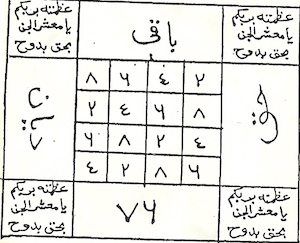 عظمته بربكم
يا معشر الجن
بحق بدوح
باقی
عظمته بربكم
يا معشر الجن
بحق بدوح
٨ ٦ ٤ ٢
٢ ٤ ٦ ٨
٦ ٨ ٢ ٤
٤ ٢ ٨ ٦
عظمته بربكم
يا معشر الجن
بحق بدوح
٧٨٦
عظمته بربكم
يا معشر الجن
بحق بدوح